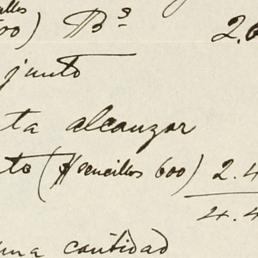 00) Bˢ 2.6
junto
ta alcanzar
to (sencillos 600) 2.4
4.4
una cantidad